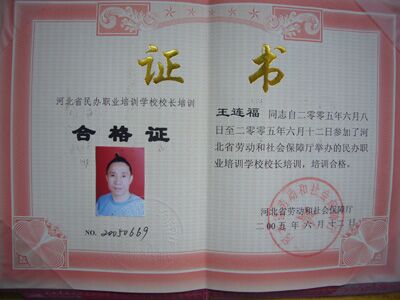 证 书
河北省民办职业培训学校校长培训
合格证
NO. 20050669
王连福 同志自二零零五年六月八
日至二零零五年六月十二日参加了河
北省劳动和社会保障厅举办的民办职
业培训学校校长培训，培训合格。
河北省劳动和社会保障厅
二〇〇五年六月十二日